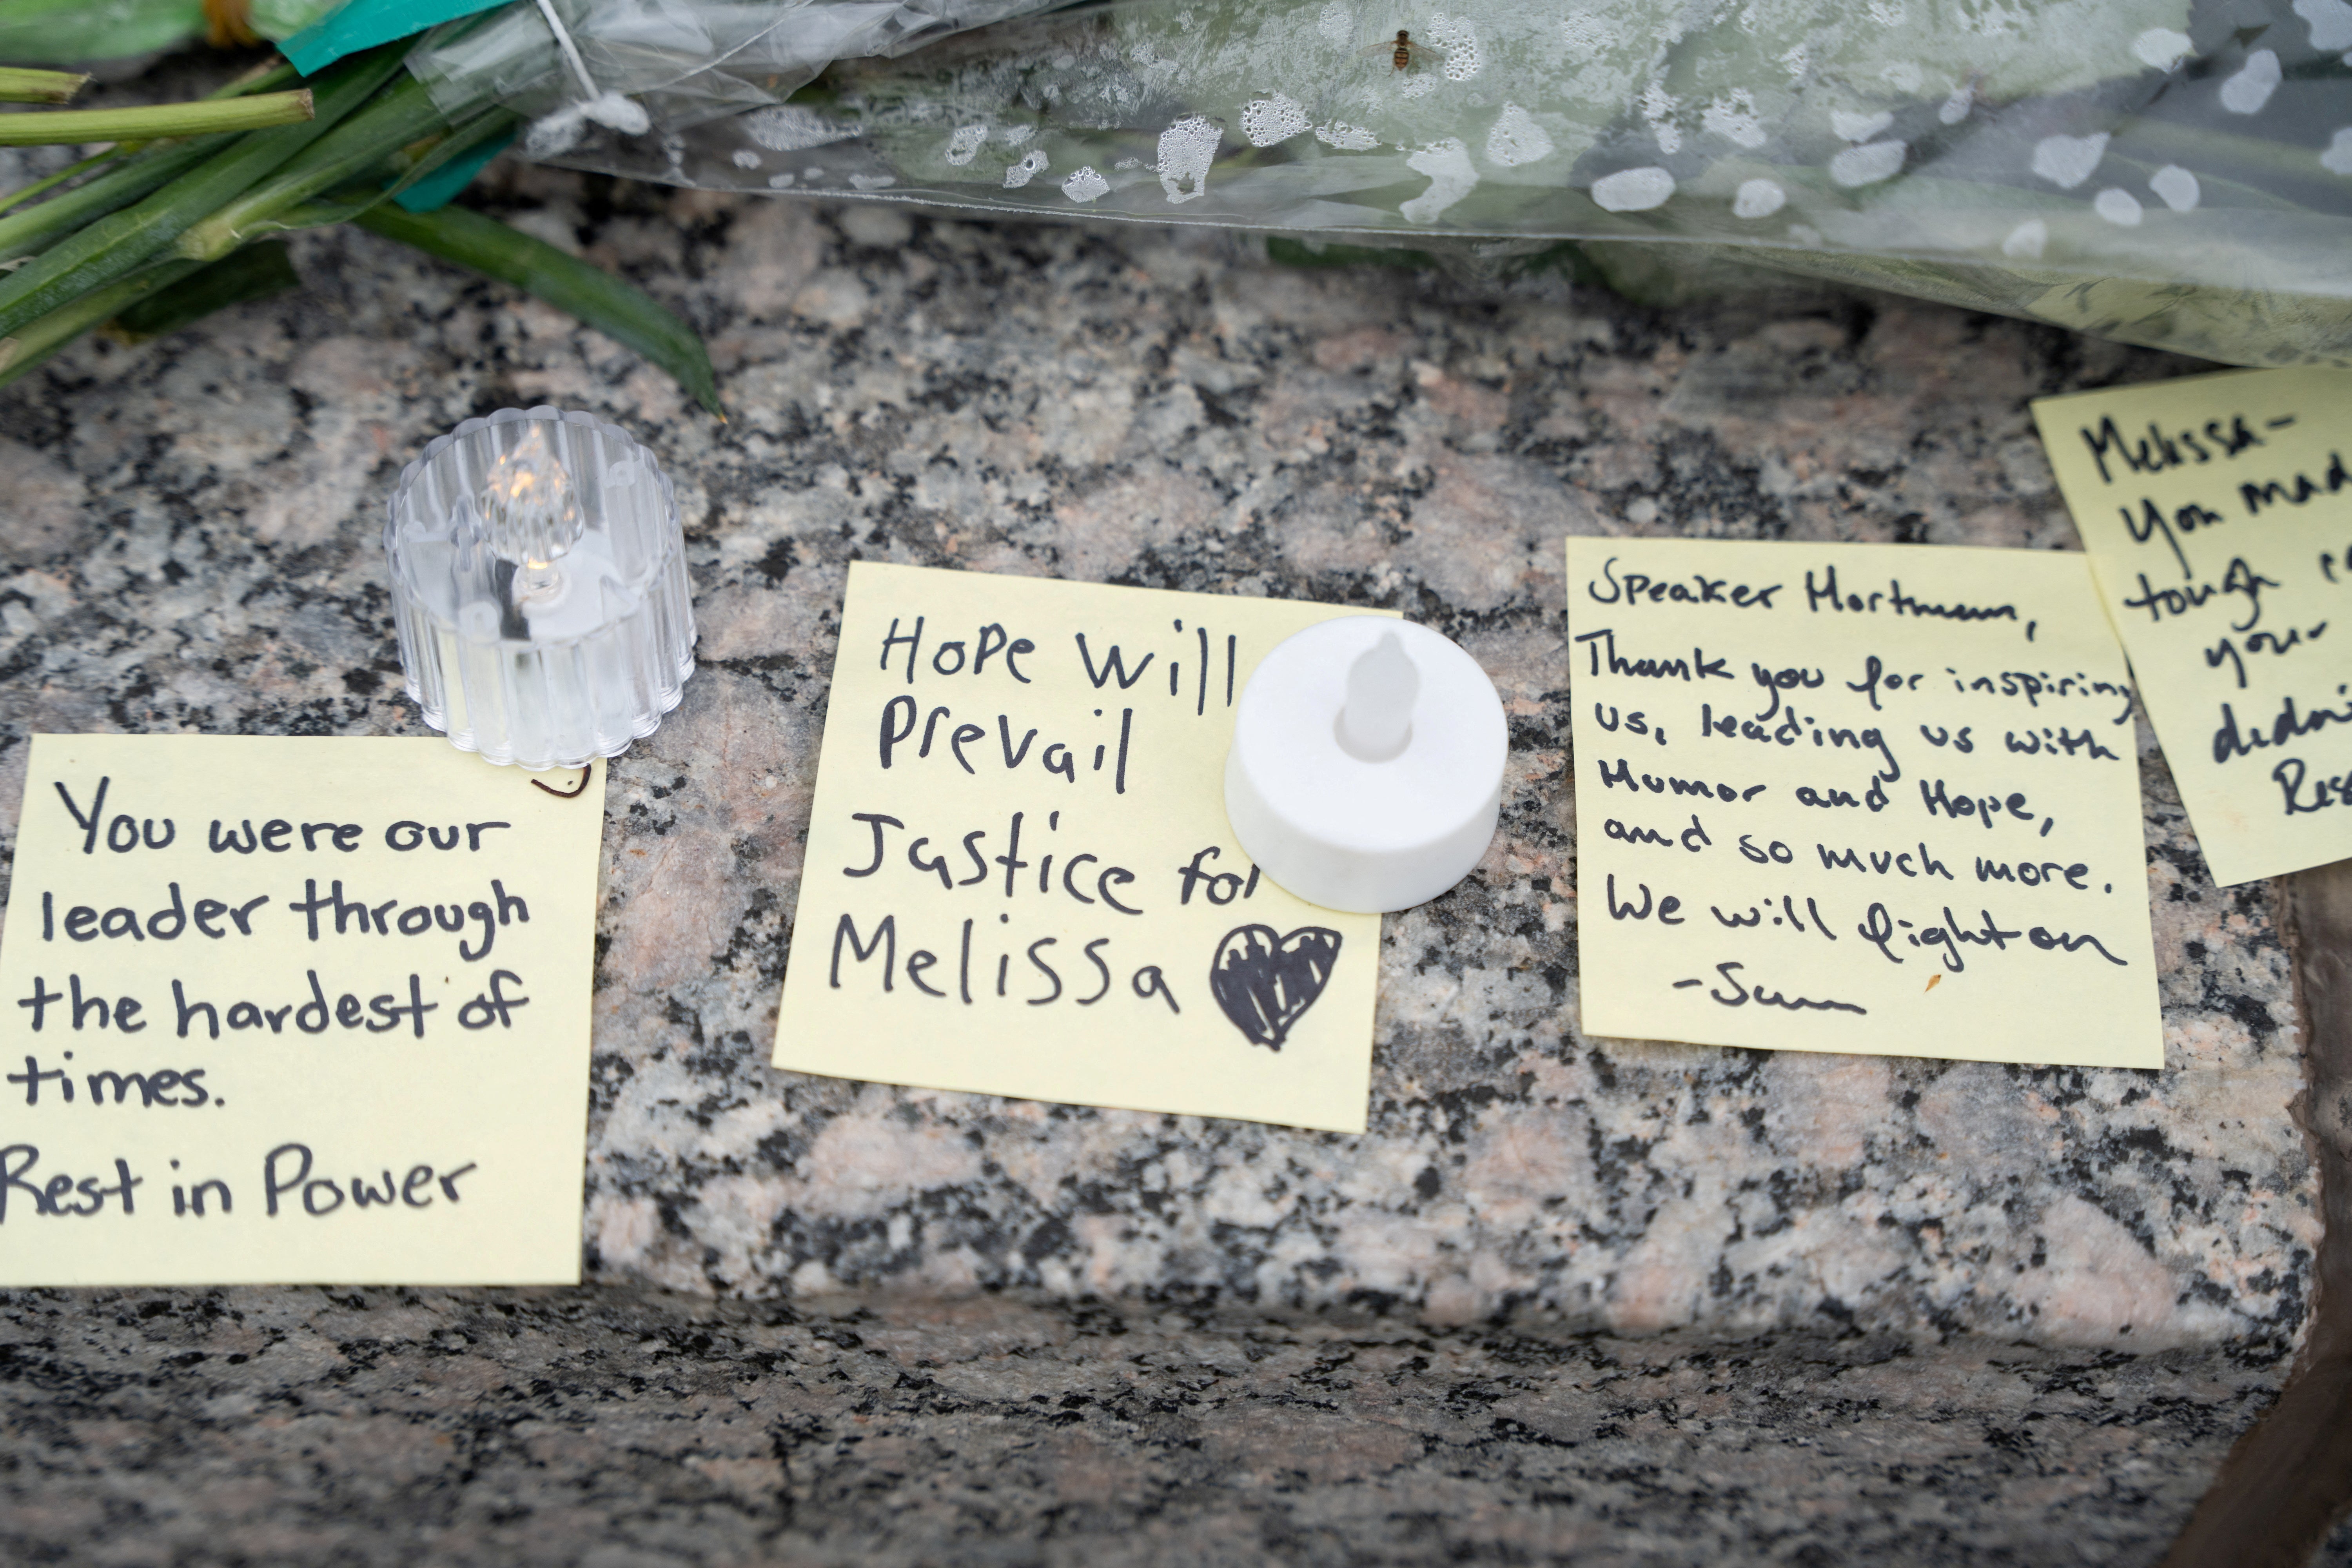 You were our
leader through
the hardest of
times.
Rest in Power
Hope Will
Prevail
Justice for
Melissa
Speaker Hortman,
Thank you for inspiring
us, leading us with
Humor and Hope,
and so much more.
We will fight on
Melissa-
You mad
tough
your
didn'
Res